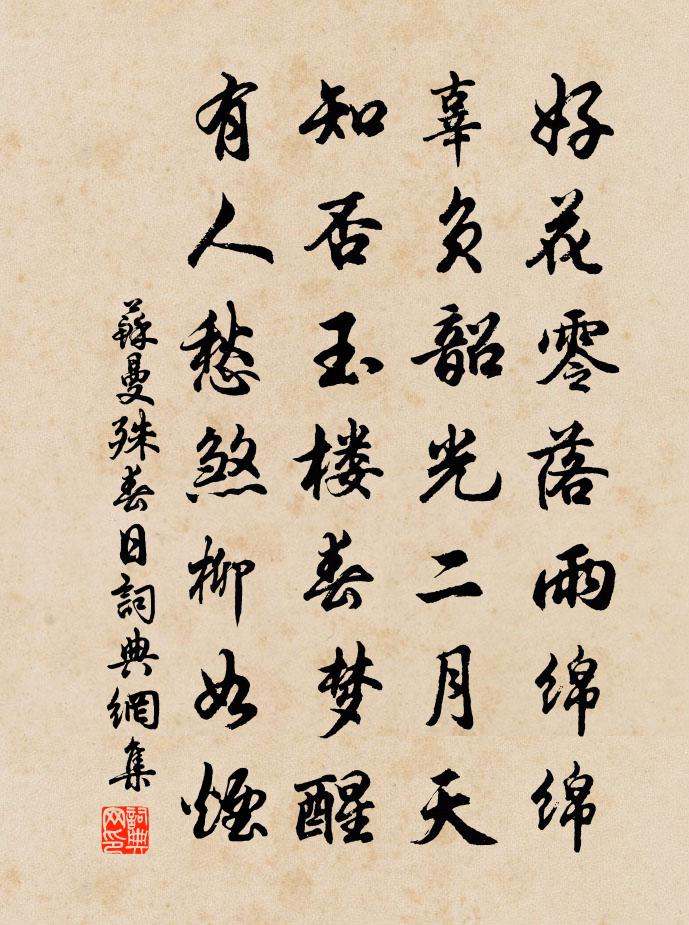 好花零落雨绵绵
辜负韶光二月天
知否玉楼春梦醒
有人愁煞柳如烟
蘇曼殊春日詞典網集
詞典網印